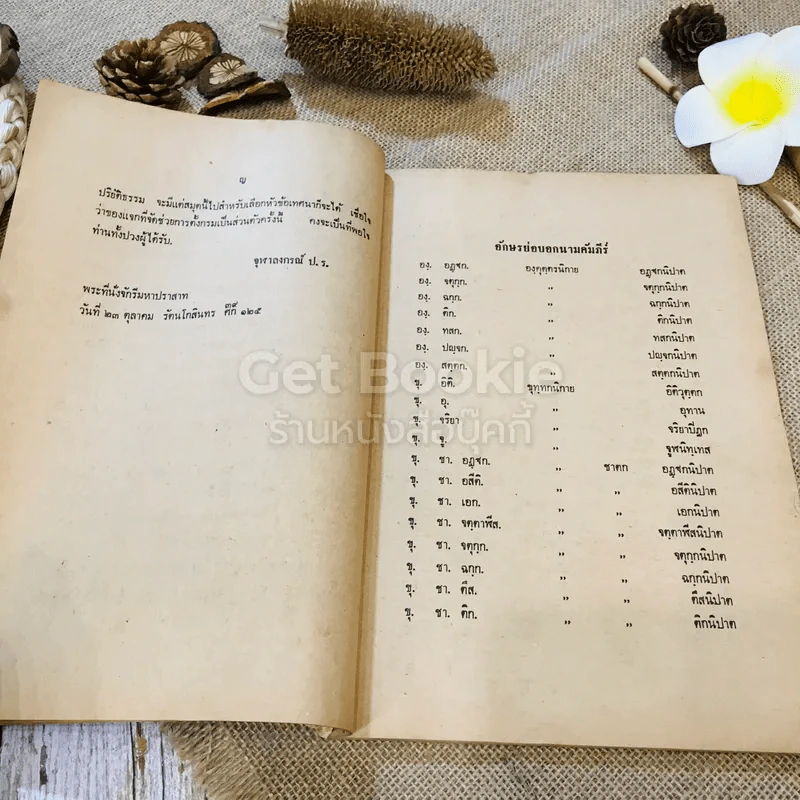 ญ
ปริยัติธรรม จะมีแต่สมุดนี้ไปสำหรับเลือกหัวข้อเทศนาก็จะได้ เชื่อใจ
ว่าของแจกที่จัดช่วยการตั้งกรมเป็นส่วนตัวครั้งนี้ คงจะเป็นที่พอใจ
ท่านทั้งปวงผู้ได้รับ.
จุฬาลงกรณ์ ป.ร.
พระที่นั่งจักรีมหาปราสาท
วันที่ ๒๓ ตุลาคม รัตนโกสินทร ๓๙ ศก ๑๒๕
อักษรย่อบอกนามคัมภีร์
องฺ. อฏฺฐก. องฺคุตฺตรนิกาย อฏฺฐกนิปาต
องฺ. จตุกฺก. ,, จตุกฺกนิปาต
องฺ. ฉกฺก. ,, ฉกฺกนิปาต
องฺ. ติก. ,, ติกนิปาต
องฺ. ทสก. ,, ทสกนิปาต
องฺ. ปญฺจก. ,, ปญฺจกนิปาต
องฺ. สตฺตก. ,, สตฺตกนิปาต
ขุ. อิติ. ขุทฺทกนิกาย อิติวุตฺตก
ขุ. อุ. ,, อุทาน
ขุ. จริยา ,, จริยาปิฎก
ขุ. จู. ,, จูฬนิทฺเทส
ขุ. ชา. อฏฺฐก. ,, ชาตก อฏฺฐกนิปาต
ขุ. ชา. อสีติ. ,, ,, อสีตินิปาต
ขุ. ชา. เอก. ,, ,, เอกนิปาต
ขุ. ชา. จตฺตาฬีส. ,, ,, จตฺตาฬีสนิปาต
ขุ. ชา. จตุกฺก. ,, ,, จตุกฺกนิปาต
ขุ. ชา. ฉกฺก. ,, ,, ฉกฺกนิปาต
ขุ. ชา. ตึส. ,, ,, ตึสนิปาต
ขุ. ชา. ติก. ,, ,, ติกนิปาต
Get Bookie
ร้านหนังสือบุ๊คกี้